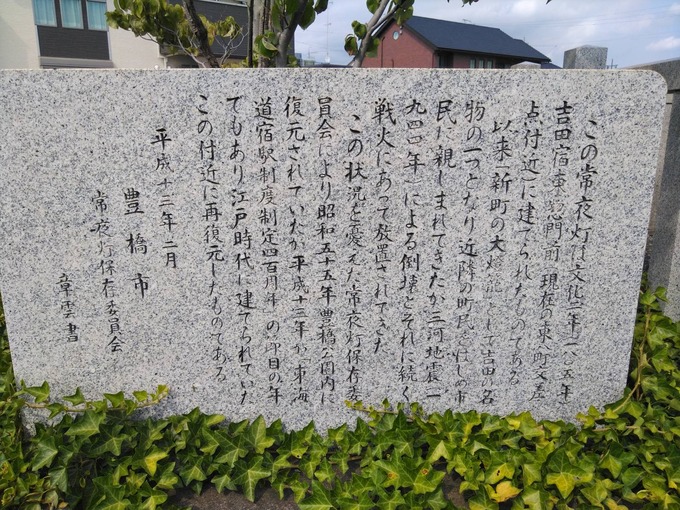 この常夜灯は文化二年(一八〇五年
吉田宿東惣門前(現在の東八町交差
点付近に建てられたものである
以来「新町の大燈籠」として吉田の名
物の一つとなり近隣の町民をはじめ市
民に親しまれてきたが三河地震(一
九四四年)による倒壊とそれに続く
戦火にあって放置されてきた
この状況を憂えた常夜灯保存委
員会により昭和五十五年豊橋公園内に
復元されていたが平成十三年が「東海
道宿駅制度制定四百周年」の節目の年
でもあり江戸時代に建てられていた
この付近に再復元したものである
平成十三年二月
豊橋市
常夜灯保存委員会
章雲書